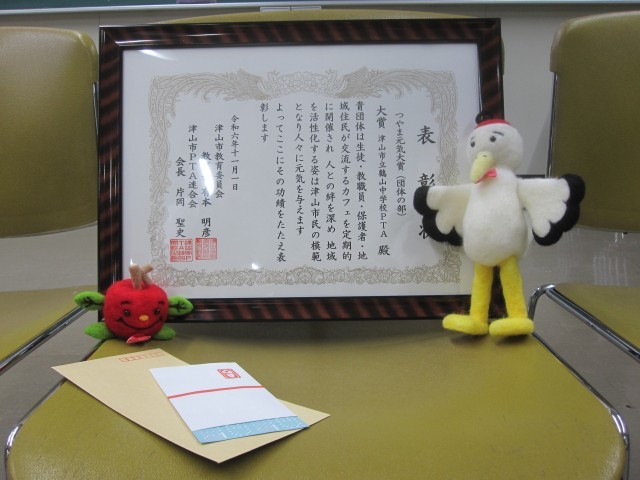 表彰状
つやま元気大賞（団体の部）
大賞 津山市立鶴山中学校PTA 殿
貴団体は生徒・教職員・保護者・地
域住民が交流するカフェを定期的
に開催され 人との絆を深め 地域
を活性化する姿は津山市民の模範
となり人々に元気を与えます
よってここにその功績をたたえ表
彰します
令和六年十一月一日
津山市教育委員会
明彦
津山市PTA連合会
会長 片岡 聖史